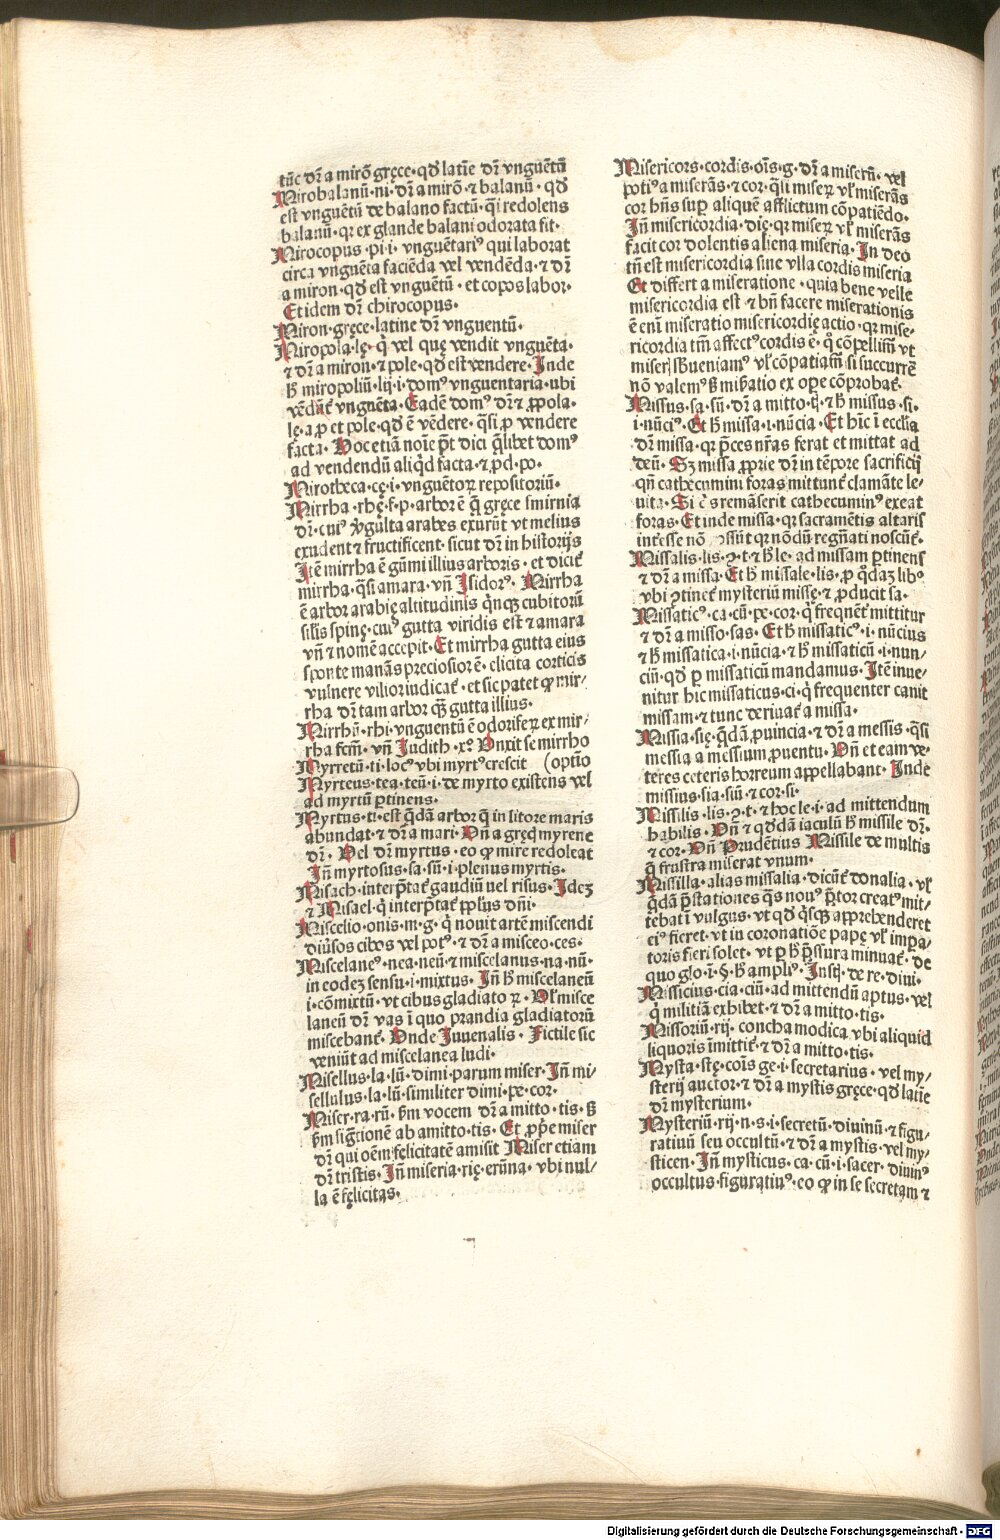 tūc dr̄ a mirō gręce·qd̄ latīe dr̄ vnguētū
Mirobalanū·ni·dr̄ a mirō ⁊ balanū·qd̄
est vnguētū de balano factū·q̄i redolens
balanū·qr ex glande balani odorata fit·
Mirocopus·pi·i·vnguētariꝰ qui laborat
circa vnguēta faciēda vel vendēda·⁊ dr̄
a miron·qd̄ est vnguētū·et copos labor·
Et idem dr̄ chirocopus·
Miron·gręce·latine dr̄ vnguentū·
Miropola·lę·q̇ vel quę vendit vnguēta·
⁊ dr̄ a miron·⁊ pole·qd̄ est vendere·Inde
h̄ miropoliū·lij·i·domꝰ vnguentaria·ubi
vēdūt̄ vnguēta·Eadē domꝰ dr̄ ⁊ ꝓpola·
lę·a ꝓ et pole·qd̄ ē vēdere·qͣsi ꝓ vendere
facta·Hoc etiā noīe p̄t dici q̇libet domꝰ
ad vendendū aliq̇d facta·⁊ ꝓd·po·
Mirotheca·cę·i·vnguētoꝝ repositoriū·
Mirrha·rhę·f·p·arbor ē q̄ gręce smirnia
dr̄·cuiꝰ v̇gulta arabes exurūt vt melius
exudent ⁊ fructificent·sicut dr̄ in historijs
Itē mirrha ē gūmi illius arboris·et dicit̄
mirrha·qͣsi amara·vn̄ Isidorꝰ·Mirrha
ē arbor arabię altitudinis q̇nqꝫ cubitorū
sil̄is spinę·cuiꝰ gutta viridis est ⁊ amara
vn̄ ⁊ nomē accepit·Et mirrha gutta eius
sponte manās preciosior ē·elicita corticis
vulnere vilior iudicat̄·et sic patet ꝙ mir⸗
rha dr̄ tam arbor qꝫ gutta illius·
Mirrhū·rhi·vnguentū ē odoriferꝝ ex mir⸗
rha fcm̄·vn̄ Judith·x?·Unxit se mirrho
Myrretū·ti·locꝰ vbi myrtꝰ crescit (optio
Myrteus·tea·teū·i·de myrto existens vel
ad myrtū ꝑtinens·
Myrtus·ti·est q̄dā arbor q̄ in litore maris
abundat·⁊ dr̄ a mari·Un̄ a gręco myrene
dr̄·Vel dr̄ myrtus·eo ꝙ mire redoleat
In̄ myrtosus·sa·sū·i·plenus myrtis·
Misach·interp̄tat̄ gaudiū uel risus·Idez
⁊ Misael·q̇ interp̄tat̄ ꝓplus dn̄i·
Miscelio·onis·m·g·q̇ nouit artē miscendi
diūsos cibos vel potꝰ·⁊ dr̄ a misceo·ces·
Miscelaneꝰ·nea·neū·⁊ miscelanus·na·nū·
in eodez sensu·i·mixtus·In̄ h̄ miscelaneū
i·cōmixtū·vt cibus gladiatoꝝ·Vl̄ misce
laneū dr̄ vas ī quo prandia gladiatorū
miscebant̄·Unde Juuenalis·Fictile sic
veniūt ad miscelanea ludi·
Misellus·la·lū·dimi·parum miser·In̄ mi⸗
sellulus·la·lū·similiter dimi·pe·cor·
Miser·ra·rū·ẜm vocem dr̄ a mitto·tis·ß
ẜm siḡtionē ab amitto·tis·Et ꝓpe miser
dr̄ qui oēm felicitatē amisit Miser etiam
dr̄ tristis·In̄ miseria·rię·erūna·vbi nul⸗
la ē fęlicitas·
Misericors·cordis·oīs·g·dr̄ a miserū·vel
potiꝰ a miserās·⁊ cor·q̄i miseꝝ vl̄ miserās
cor hn̄s sup̱ aliquē afflictum cōpatiēdo·
In̄ misericordia·dię·qr miseꝝ vl̄ miserās
facit cor dolentis aliena miseria·In deo
tn̄ est misericordia sine vlla cordis miseria
Et differt a miseratione·quia bene velle
misericordia est ⁊ bn̄ facere miserationis
ē enī miseratio misericordię actio·qr mise⸗
ricordia tm̄ affectꝰ cordis ē·q̊ cōpellim̄ vt
miser̄ s̄bueniamꝰ vl̄ cōpatiam̄ si succurrē
nō valemꝰ ß mis̄atio ex oꝑe cōprobat̄·
Missus·sa·sū·dr̄ a mitto·tꝫ·⁊ h̄ missus·si·
i·nūciꝰ·Et h̄ missa·i·nūcia·Et hic ī ecclīa
dr̄ missa·qr p̄ces nr̄as ferat et mittat ad
deū·Sꝫ missa ꝓprie dr̄ in tēpore sacrificij
qn̄ cathecumini foras mittunt̄ clamāte le⸗
uita·Si c̄s remāserit cathecuminꝰ exeat
foras·Et inde missa·qr sacramētis altaris
interesse nō possūt qr nōdū regn̄ati noscūt̄·
Missalis·lis·ꝯ·t·⁊ h̄ le·ad missam ꝑtinens
⁊ dr̄ a missa·Et h̄ missale·lis·ꝓ q̊daꝫ libꝰ
vbi ꝯtinet̄ mysteriū missę·⁊ ꝓducit sa·
Missaticꝰ·ca·cū·pe·cor·q̇ frequēt̄ mittitur
⁊ dr̄ a misso·sas·Et h̄ missaticꝰ·i·nūcius
⁊ h̄ missatica·i·nūcia·⁊ h̄ missaticū·i·nun⸗
ciū·qd̄ ꝑ missaticū mandamus·Itē inue⸗
nitur hic missaticus·ci·q̇ frequenter canit
missam·⁊ tunc deriuat̄ a missa·
Missia·się·q̄dā ꝓuincia·⁊ dr̄ a messis·qͣsi
messia a messium ꝓuentu·Un̄ et eam ve⸗
teres ceteris horreum appellabant·Inde
missius·sia·siū·⁊ cor·si·
Missilis·lis·ꝯ·t·⁊ hoc le·i·ad mittendum
habilis·Un̄ ⁊ qd̄dā iaculū h̄ missile dr̄·
⁊ cor·Un̄ Prudētius Missile de multis
q̄ frustra miserat vnum·
Missilla·alias missalia·dicūt̄ donalia·vl̄
q̄dā p̄stationes q̄s nouꝰ p̄tor creatꝰ mit⸗
tebat ī vulgus·vt qd̄ q̇sqꝫ apprehenderet
eiꝰ fieret·vt in coronatiōe papę vl̄ imp̱a⸗
toris fieri solet·vt ꝑ h̄ p̄ssura minuat̄·de
quo glo·ī·§·h̄ ampliꝰ·Instꝫ·de re·diui·
Missicius·cia·ciū·ad mittendū aptus·vel
q̇ militiā exhibet·⁊ dr̄ a mitto·tis·
Missoriū·rij·concha modica vbi aliquid
liquoris īmittit̄·⁊ dr̄ a mitto·tis·
Mysta·stę·cōis ge·i·secretarius·vel my⸗
sterij auctor·⁊ dr̄ a mystis gręce·qd̄ latīe
dr̄ mysterium·
Mysteriū·rij·n·s·i·secretū·diuinū·⁊ figu⸗
ratiuū seu occultū·⁊ dr̄ a mystis·vel my⸗
sticen·In̄ mysticus·ca·cū·i·sacer·diuinꝰ
occultus·figuratiuꝰ·eo ꝙ in se secretam ⁊
Digitalisierung gefördert durch die Deutsche Forschungsgemeinschaft - DFG